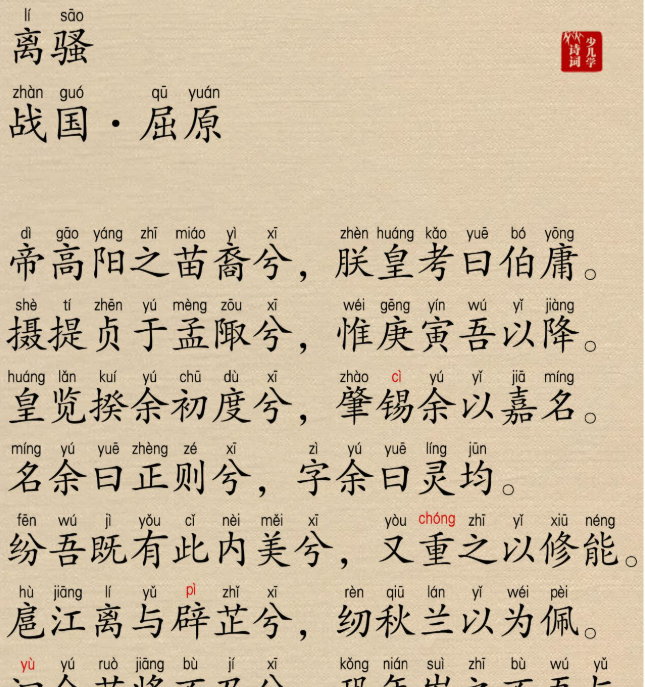 lí sāo
离骚
少儿学
诗词
zhàn guó qū yuán
战国·屈原
dì gāo yáng zhī miáo yì xī zhèn huáng kǎo yuē bó yōng
帝高阳之苗裔兮，朕皇考曰伯庸。
shè tí zhēn yú mèng zōu xī wéi gēng yín wú yǐ jiàng
摄提贞于孟陬兮，惟庚寅吾以降。
huáng lǎn kuí yú chū dù xī zhào cì yú yǐ jiā míng
皇览揆余初度兮，肇锡余以嘉名。
míng yú yuē zhèng zé xī zì yú yuē líng jūn
名余曰正则兮，字余曰灵均。
fēn wú jì yǒu cǐ nèi měi xī yòu chóng zhī yǐ xiū néng
纷吾既有此内美兮，又重之以修能。
hù jiāng lí yǔ pì zhǐ xī rèn qiū lán yǐ wéi pèi
扈江离与辟芷兮，纫秋兰以为佩。
yù yú ruò jiāng bù jí xī kǒng nián suì zhī bù wú yǔ